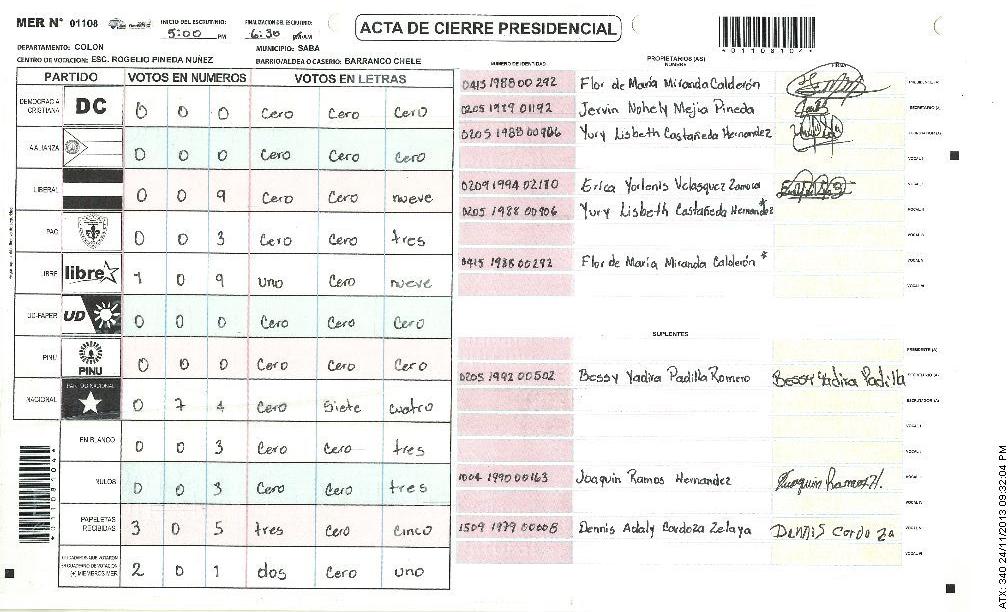 MER N° 01108
INICIO DEL ESCRUTINIO:
5:00 PM
FINALIZACION DEL ESCRUTINIO:
6:30
ACTA DE CIERRE PRESIDENCIAL
DEPARTAMENTO: COLON
MUNICIPIO: SABA
CENTRO DE VOTACION: ESC. ROGELIO PINEDA NUÑEZ
BARRIO/ALDEA O CASERIO: BARRANCO CHELE
PARTIDO VOTOS EN NUMEROS VOTOS EN LETRAS
DEMOCRACIA CRISTIANA DC 0 0 0 Cero Cero Cero
ALIANZA 0 0 0 Cero Cero Cero
LIBERAL 0 0 9 Cero Cero nueve
PAC 0 0 3 Cero Cero tres
LIBRE libre 1 0 9 uno Cero nueve
UD-FAPER UD 0 0 0 Cero Cero Cero
PINU PINU 0 0 0 Cero Cero Cero
NACIONAL PARTIDO NACIONAL 0 7 4 Cero Siete cuatro
EN BLANCO 0 0 3 Cero Cero tres
NULOS 0 0 3 Cero Cero tres
PAPELETAS RECIBIDAS 3 0 5 tres Cero Cinco
CIUDADANOS QUE VOTARON EN CUADERNO DE VOTACION (+) MIEMBROS MER 2 0 1 dos Cero uno
PROPIETARIOS (AS)
NUMERO DE IDENTIDAD NOMBRE FIRMA
0413 1988 00292 Flor de María Miranda Calderón PRESIDENTE (A)
0205 1989 01192 Jervin Nohely Mejia Pineda SECRETARIO (A)
0205 1988 00906 Yury Lisbeth Castañeda Hernandez ESCRUTADOR (A)
VOCAL I
0209 1994 02110 Erica Yorlenis Velasquez Zamora
0205 1988 00906 Yury Lisbeth Castañeda Hernandez *
0415 1988 00292 Flor de María Miranda Calderón *
SUPLENTES
PRESIDENTE (A)
0205 1992 00502 Bessy Yadira Padilla Romero Bessy Yadira Padilla SECRETARIO (A)
ESCRUTADOR (A)
1004 1990 00163 Joaquin Ramos Hernandez Joaquin Ramos H.
1509 1979 00008 Dennis Adaly Cordoza Zelaya Dennis Cordoza
ATX: 340 24/11/2013 09:32:04 PM